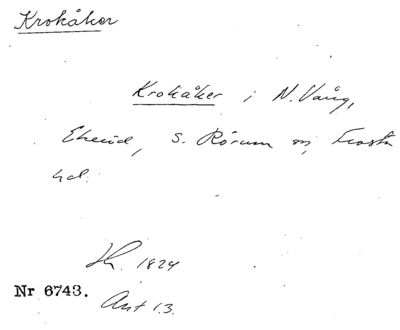 Krokåker
Krokåker i N. Vång,
Ekeröd, S. Rörum sn, Frosta
hd.
Sk. 1824
Nr 6743.
Ant 13.